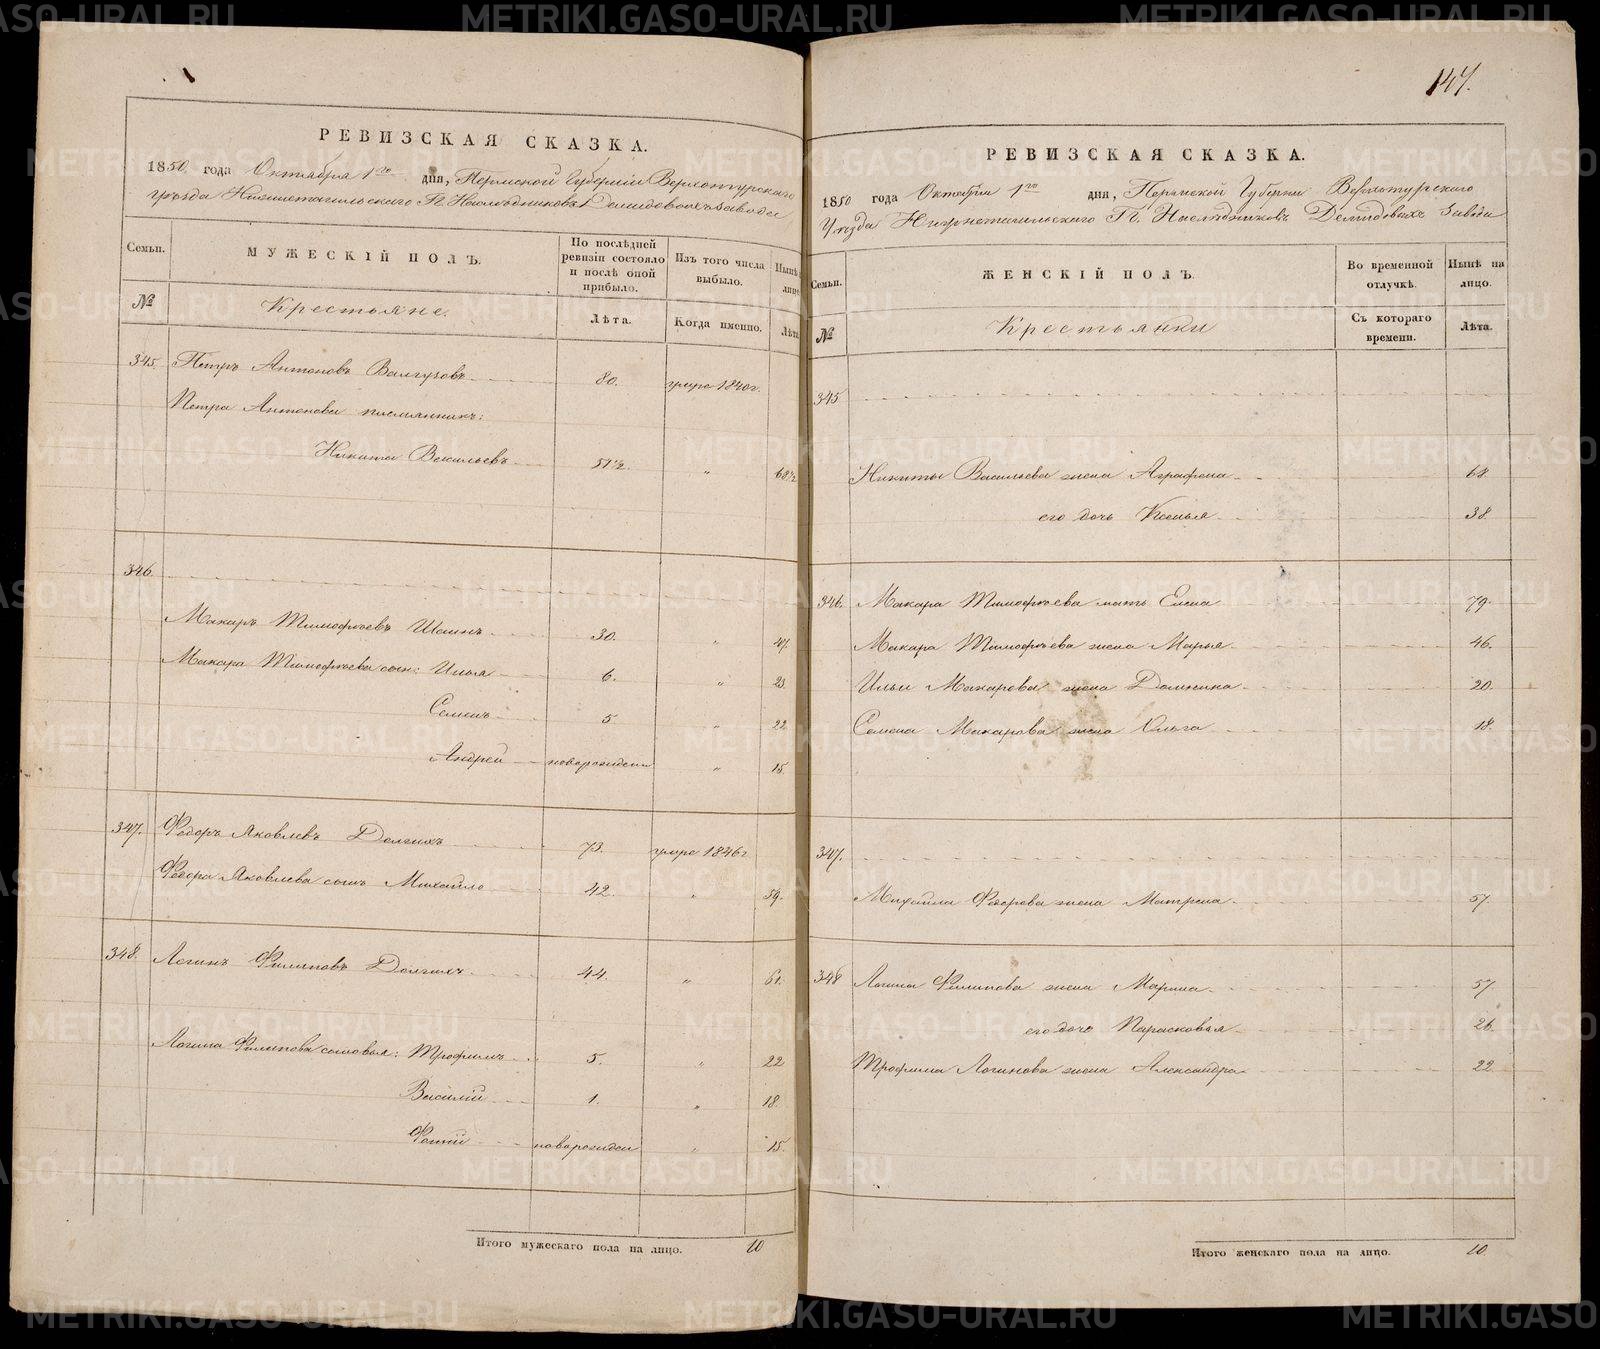 РЕВИЗСКАЯ СКАЗКА.
1850 года Октября 1го дня, Пермской Губернiи Верхотурскаго
уѣзда Нижнетагильскаго Г. Наслѣдниковъ Демидовыхъ завода
Семьи.
МУЖЕСКIЙ ПОЛЪ.
По послѣдней
ревизiи состояло
и послѣ оной
прибыло.
Изъ того числа
выбыло.
Нынѣ
лицо
№
Крестьяне.
Лѣта.
Когда именно.
Лѣта
345. Петръ Антоновъ 80. умре 1840г.
Петра Антонова племянникъ:
Никита Васильевъ 51 1/2. " 68 1/2
346.
Макаръ Тимофѣевъ 30. " 47.
Макара Тимофѣева сын: Илья 6. " 23
Семенъ 5 " 22
Андрей новорожден " 15.
347. Федоръ Яковлевъ Долгихъ 73. умре 1846г
Федора Яковлева сынъ Михайло 42. " 59.
348. Логинъ Филиповъ Долгихъ 44. " 61.
Логина Филипова сыновья: Трофимъ 5. " 22
Василiй 1. " 18.
новорожден " 15.
Итого мужескаго пола на лицо. 10
147.
РЕВИЗСКАЯ СКАЗКА.
1850 года Октября 1го дня, Пермской Губернiи Верхотурскаго
Уѣзда Нижнетагильскаго Г. Наслѣдниковъ Демидовыхъ завода
Семьи.
ЖЕНСКIЙ ПОЛЪ.
Во временной
отлучкѣ.
Нынѣ на
лицо.
№
Крестьянки
Съ котораго
времени.
Лѣта.
345
Никиты Васильева жена Аграфена 68.
его дочь Ксенья 38.
346. Макара Тимофѣева мать Елена 79.
Макара Тимофѣева жена Марья 46.
Ильи Макарова жена Домника 20.
Семена Макарова жена Ольга 18.
347.
Михайла Федорова жена Матрена 57.
348 Логина Филипова жена Марина 57.
его дочь Парасковья 26.
Трофима Логинова жена Александра 22
Итого женскаго пола на лицо. 10.
METRIKI.GASO-URAL.RU